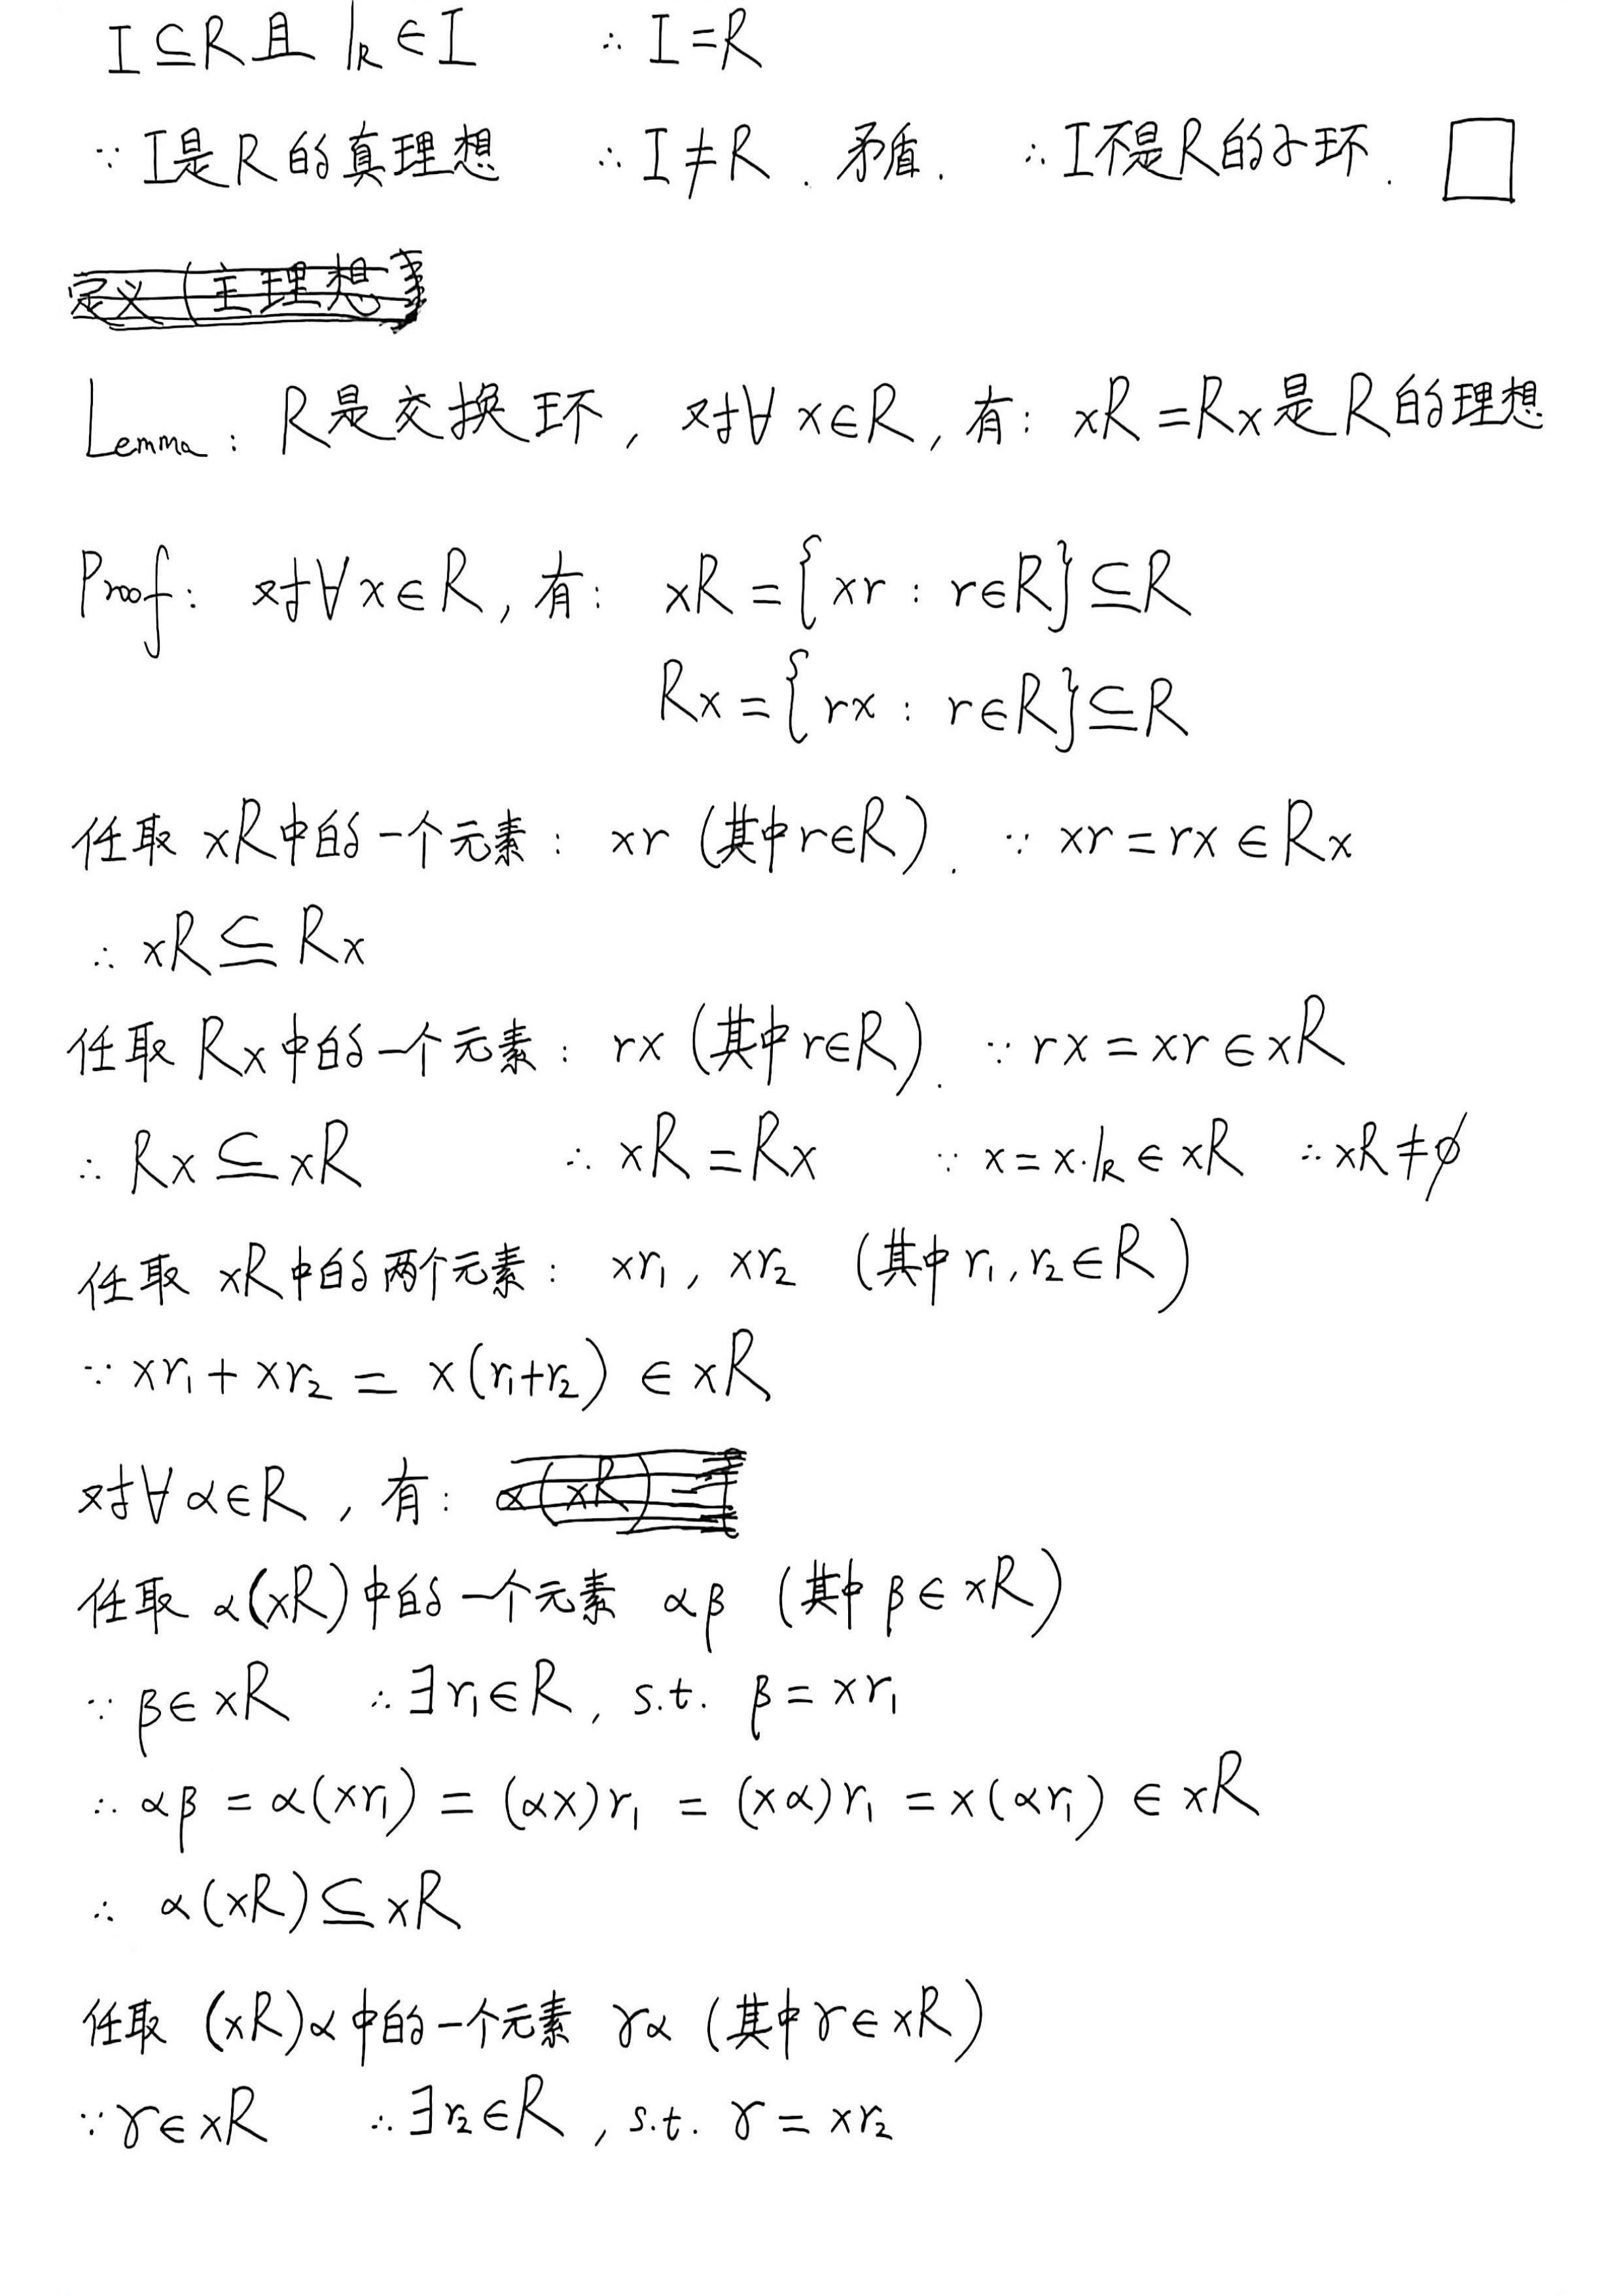 I⊆R且 1_R∈I ∴I=R
∵I是R的真理想 ∴I≠R. 矛盾. ∴I不是R的子环. □
定义(主理想)
Lemma: R是交换环, 对∀x∈R, 有: xR=Rx是R的理想
Proof: 对∀x∈R, 有: xR={xr : r∈R}⊆R
Rx={rx : r∈R}⊆R
任取 xR中的一个元素: xr (其中r∈R). ∵ xr=rx∈Rx
∴ xR⊆Rx
任取 Rx中的一个元素: rx (其中r∈R). ∵ rx=xr∈xR
∴ Rx⊆xR ∴ xR=Rx ∵ x=x·1_R∈xR ∴xR≠∅
任取 xR中的两个元素: xr₁, xr₂ (其中r₁,r₂∈R)
∵ xr₁+xr₂ = x(r₁+r₂) ∈xR
对∀α∈R, 有: α(xR)=
任取 α(xR)中的一个元素 αβ (其中 β∈xR)
∵ β∈xR ∴∃r₁∈R, s.t. β=xr₁
∴ αβ = α(xr₁) = (αx)r₁ = (xα)r₁ = x(αr₁) ∈ xR
∴ α(xR)⊆xR
任取 (xR)α中的一个元素 γα (其中γ∈xR)
∵γ∈xR ∴∃r₂∈R, s.t. γ=xr₂